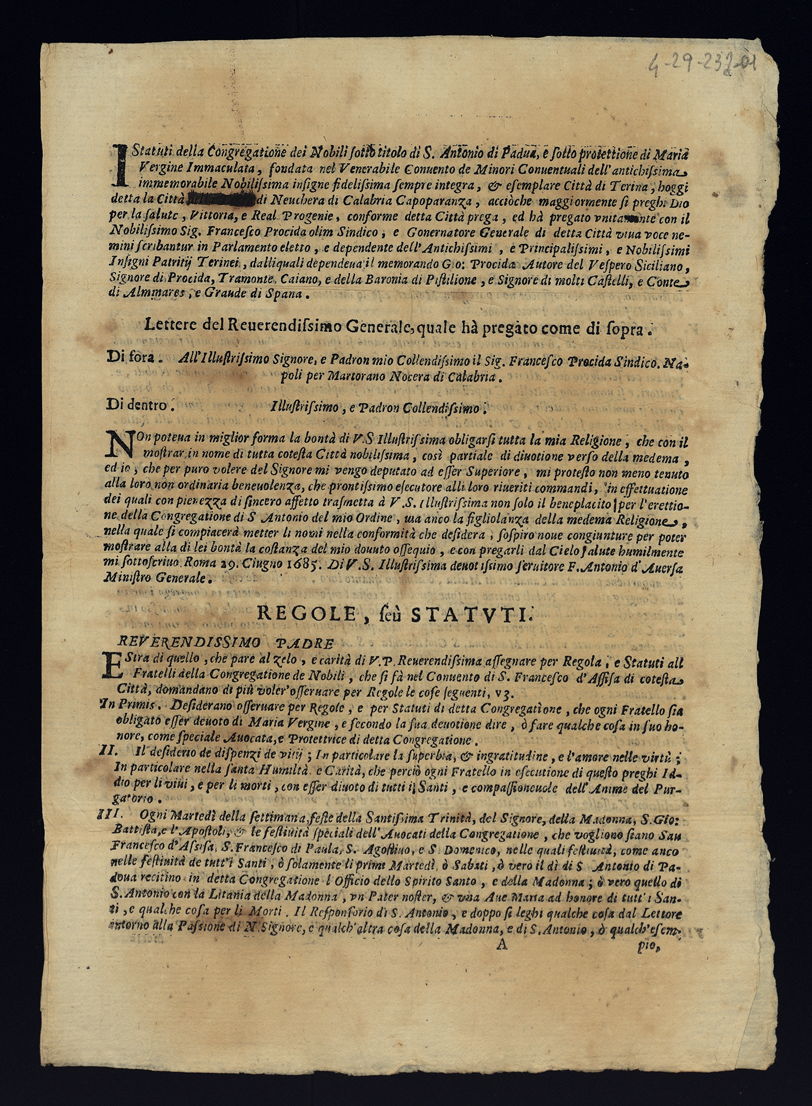 4-29-232-01
I Statuti della Congregatione dei Nobili sotto titolo di S. Antonio di Padua, e sotto protettione di Maria
Vergine Immaculata, fondata nel Venerabile Conuento de Minori Conuentuali dell'antichissima
immemorabile Nobilissima insigne fidelissima sempre integra, & esemplare Città di Terina, hoggi
detta la Città di Neuchera di Calabria Capoparanza, acciòche maggiormente si preghi Dio
per la salute, Vittoria, e Real Progenie, conforme detta Città prega, ed hà pregato vnitamente con il
Nobilissimo Sig. Francesco Procida olim Sindico, e Gouernatore Generale di detta Città viua voce ne-
mini scribantur in Parlamento eletto, e dependente dell'Antichissimi, e Principalissimi, e Nobilissimi
Insigni Patritij Terinei, dalliquali dependeua il memorando Gio: Procida Autore del Vespero Siciliano,
Signore di Procida, Tramonte, Caiano, e della Baronia di Pistilione, e Signore di molti Castelli, e Conte
di Almmares, e Grande di Spana.
Lettere del Reuerendissimo Generale, quale hà pregato come di sopra.
Di fora. All'Illustrissimo Signore, e Padron mio Collendissimo il Sig. Francesco Procida Sindico. Na-
poli per Martorano Nocera di Calabria.
Di dentro. Illustrissimo, e Padron Collendissimo.
NOn poteua in miglior forma la bontà di V.S Illustrissima obligarsi tutta la mia Religione, che con il
mostrar in nome di tutta cotesta Città nobilissima, così partiale di diuotione verso della medema,
ed io, che per puro volere del Signore mi vengo deputato ad esser Superiore, mi protesto non meno tenuto
alla loro non ordinaria beneuolenza, che prontissimo esecutore alli loro riueriti commandi, in effettuatione
dei quali con pienezza di sincero affetto trasmetta à V.S. Illustrissima non solo il beneplacito per l'erettio-
ne della Congregatione di S Antonio del mio Ordine, ma anco la figliolanza della medema Religione,
nella quale si compiacerà metter li nomi nella conformità che desidera, sospiro noue congiunture per poter
mostrare alla di lei bontà la costanza del mio douuto ossequio, e con pregarli dal Cielo salute humilmente
mi sottoscriuo Roma 29. Giugno 1685. Di V.S. Illustrissima deuotissimo seruitore F. Antonio d'Auersa
Ministro Generale.
REGOLE, seù STATVTI.
REVERENDISSIMO PADRE
EStra di quello, che pare al zelo, e carità di V.P. Reuerendissima assegnare per Regola, e Statuti all
Fratelli della Congregatione de Nobili, che si fà nel Conuento di S. Francesco d'Assisa di cotesta
Città, domandano di più voler'osseruare per Regole le cose seguenti, v3.
In Primis. Desiderano osseruare per Regole, e per Statuti di detta Congregatione, che ogni Fratello sia
obligato esser deuoto di Maria Vergine, e secondo la sua deuotione dire, ò fare qualche cosa in suo ho-
nore, come speciale Auocata, e Protettrice di detta Congregatione.
II. Il desiderio de dispenzi de vitij; In particolare la superbia, & ingratitudine, e l'amore nelle virtù;
In particolare nella santa Humiltà, e Carità, che perciò ogni Fratello in esecutione di questo preghi Id-
dio per li viui, e per li morti, con esser diuoto di tutti i Santi, e compassioneuole dell'Anime del Pur-
gatorio.
III. Ogni Martedì della settimana, feste della Santissima Trinità, del Signore, della Madonna, S. Gio:
Battista, e l'Apostoli, & le festiuità speciali dell'Auocati della Congregatione, che vogliono siano San
Francesco d'Assisa, S. Francesco di Paula, S. Agostino, e S. Domenico, nelle quali festiuità, come anco
nelle festiuità de tutt'i Santi, ò solamente li primi Martedì, ò Sabati, ò vero il dì di S Antonio di Pa-
doua recitino in detta Congregatione l'Officio dello Spirito Santo, e della Madonna; ò vero quello di
S. Antonio con la Litania della Madonna, vn Pater noster, & vna Aue Maria ad honore di tutt'i San-
ti, e qualche cosa per li Morti. Il Responsorio di S. Antonio, e doppo si leghi qualche cosa dal Lettore
intorno alla Passione di N. Signore, e qualch'altra cosa della Madonna, e di S. Antonio, ò qualch'esem-
A pio,